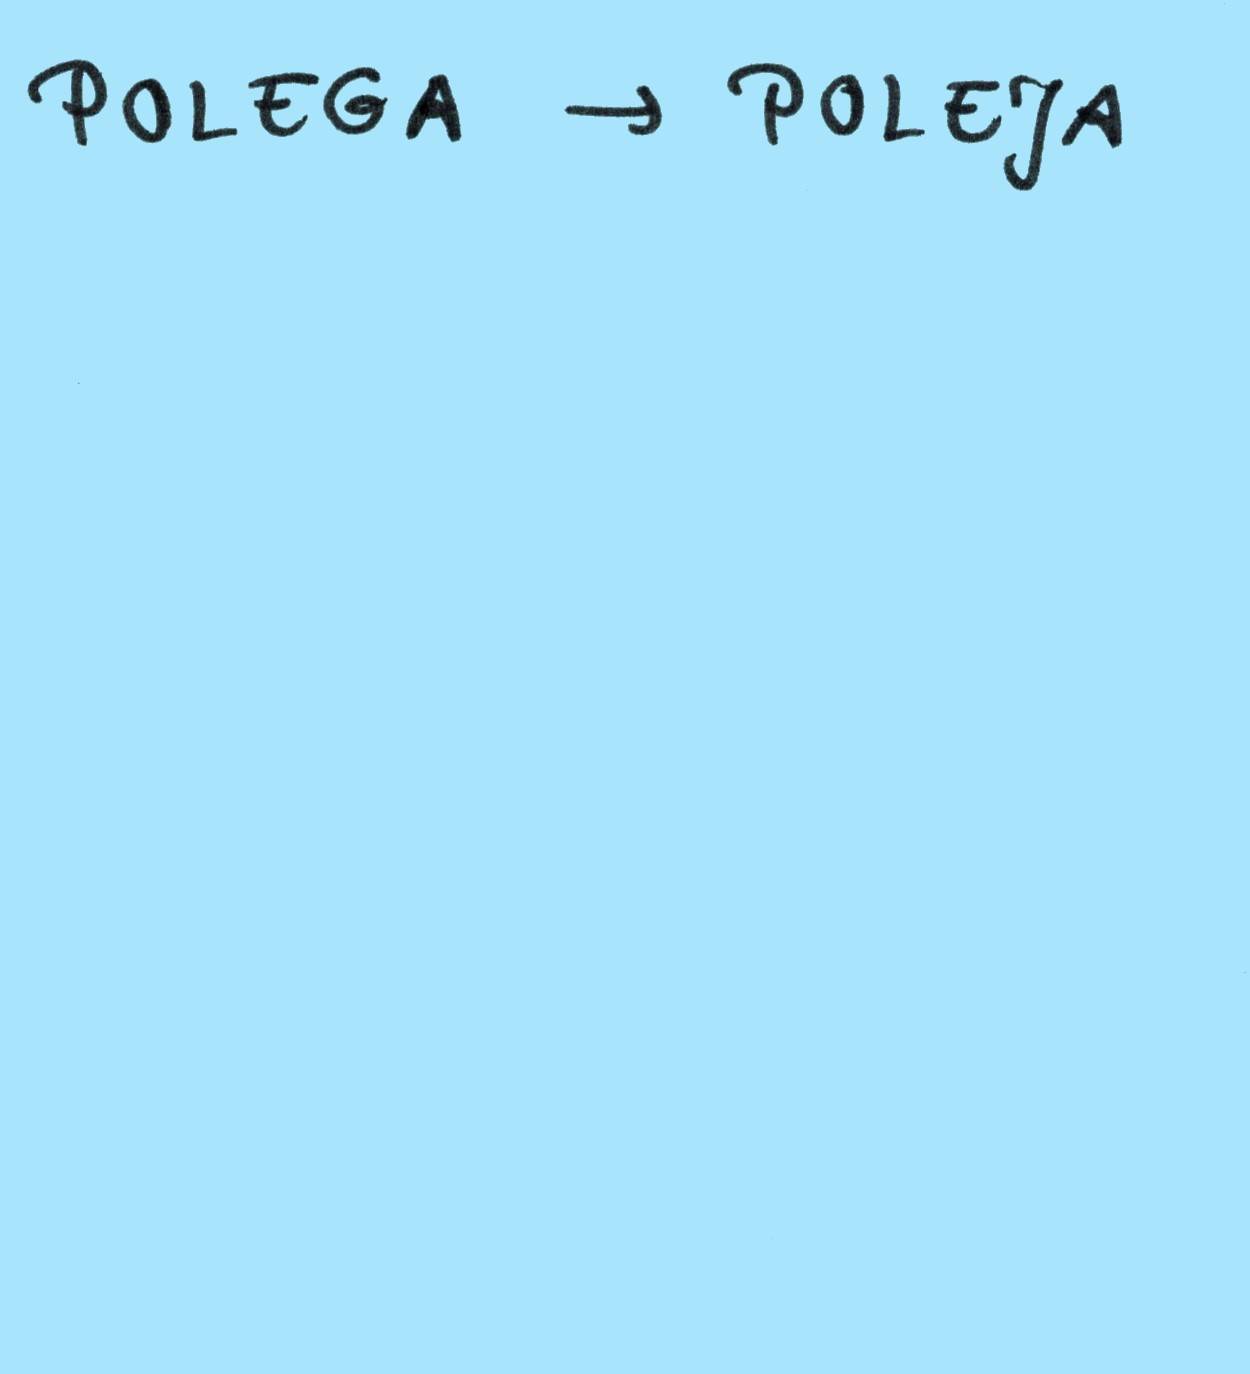 POLEGA → POLEJA